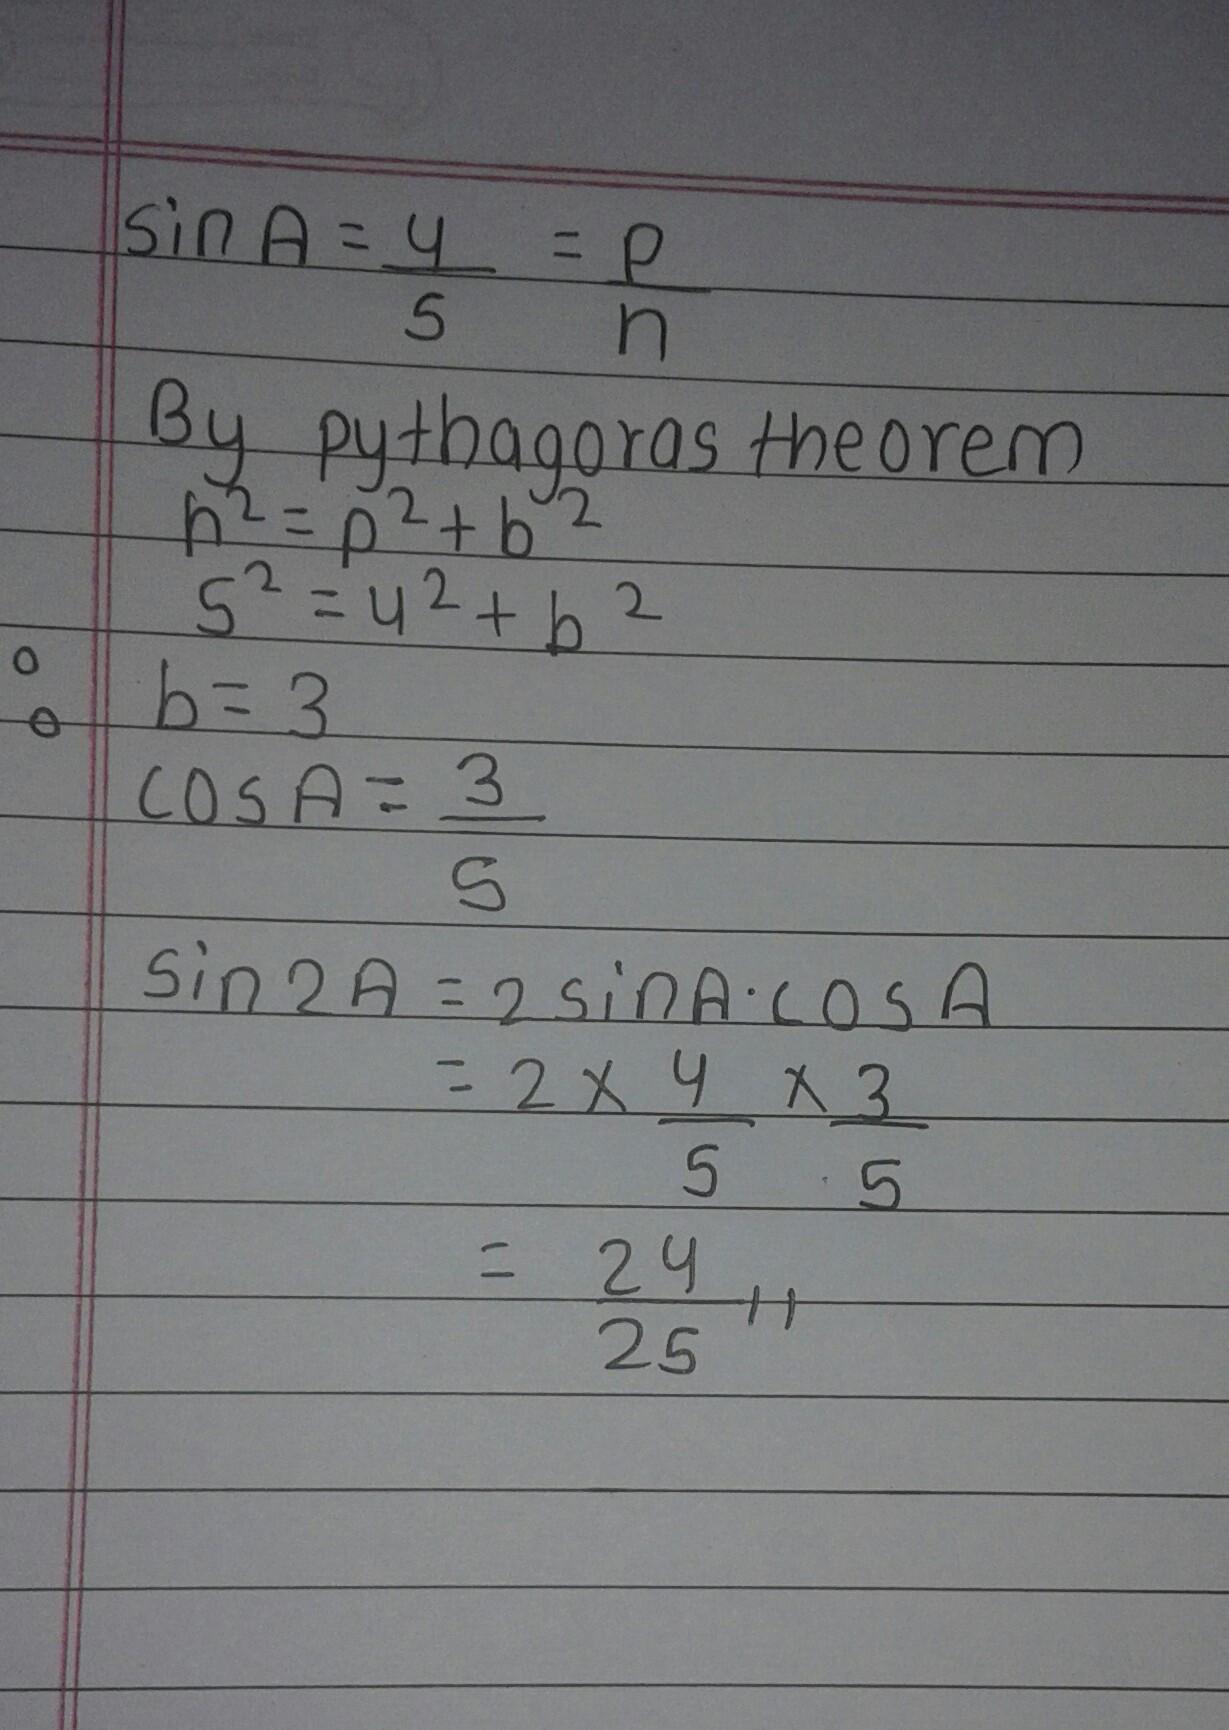 sin A = 4/5 = p/h
By pythagoras theorem
h² = p² + b²
5² = 4² + b²
b = 3
cos A = 3/5
sin 2A = 2 sin A · cos A
= 2 × 4/5 × 3/5
= 24/25 ,,